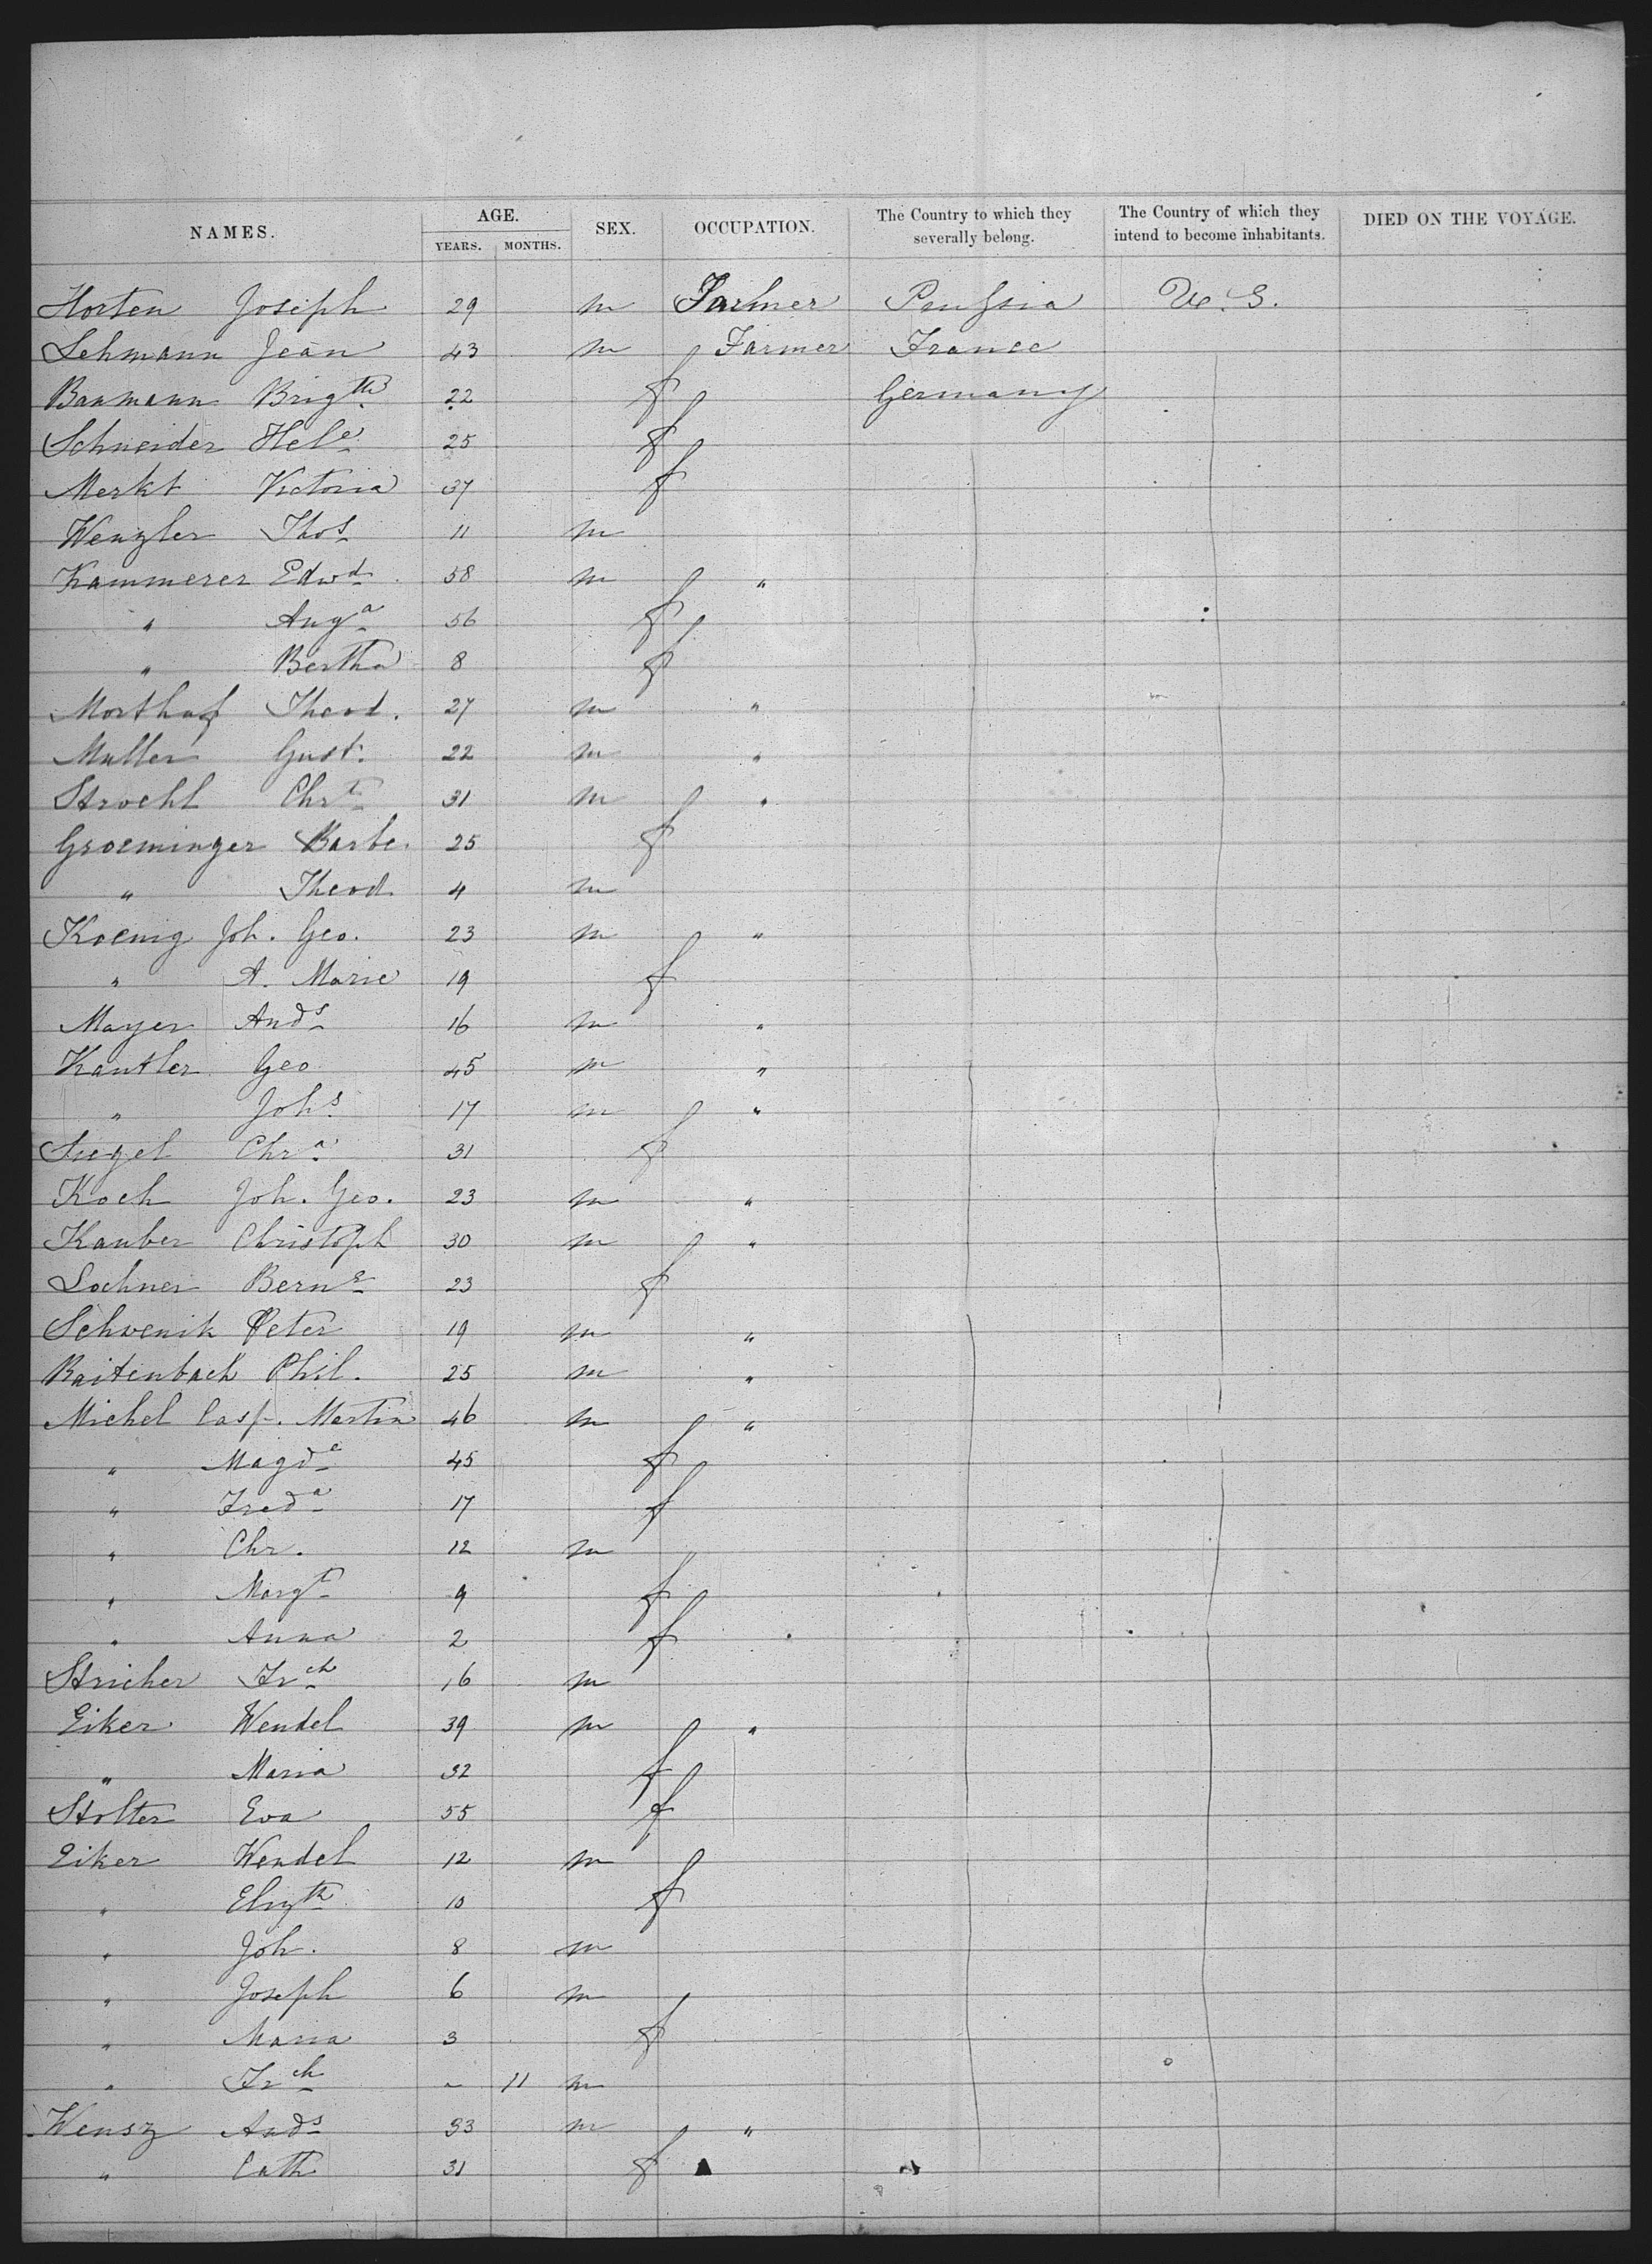 NAMES. AGE. SEX. OCCUPATION. The Country to which they severally belong. The Country of which they intend to become inhabitants. DIED ON THE VOYAGE.
YEARS. MONTHS.
Horten Joseph 29 m Farmer Prussia U. S.
Lehmann Jean 43 m Farmer France
Baumann Brigtte 22 f Germany
Schneider Hele 25 f
Merkt Victoria 37 f
Wenzler Thos 11 m
Kammerer Edwd 58 m "
" Auga 56 f
" Bertha 8 f
Morthaf Theod. 27 m "
Muller Gust. 22 m "
Stroehl Chrt 31 m "
Groeminger Barbe. 25 f
" Theod. 4 m
Koenig Joh. Geo. 23 m "
" A. Marie 19 f
Mayer Ands 16 m "
Kantler Geo 45 m "
" Johs 17 m "
Siegel Chra 31 f
Koch Joh. Geo. 23 m "
Kauber Christoph 30 m "
Lochner Berne 23 f
Schwenik Peter 19 m "
Raitenbach Phil. 25 m "
Michel Casp. Martin 46 m "
" Magde 45 f
" Freda 17 f
" Chr. 12 m
" Margt 9 f
" Anna 2 f
Stricher Frch 16 m
Eiker Wendel 39 m "
" Maria 32 f
Stolter Eva 55 f
Eiker Wendel 12 m
" Elizth 10 f
" Joh. 8 m
" Joseph 6 m
" Maria 3 f
" Frch - 11 m
Wensz Ands 33 m "
" Cath 31 f